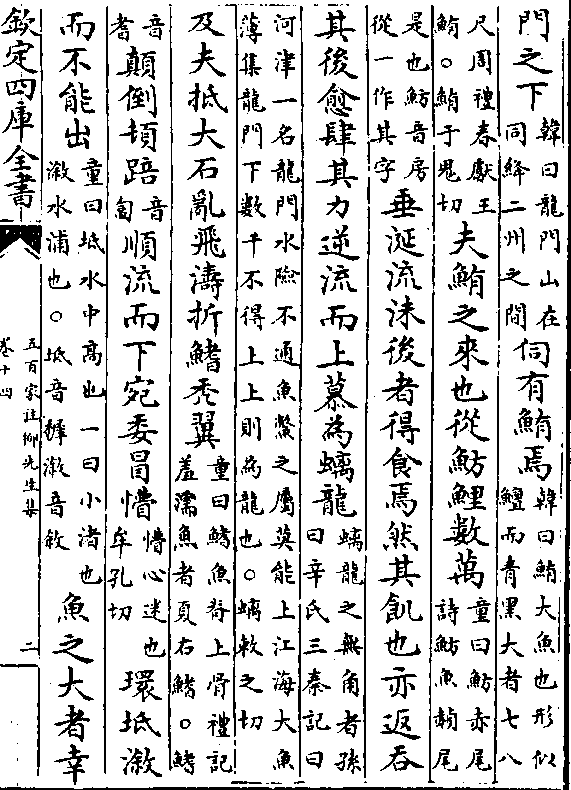 門之下韓曰龍門山在同絳二州之間伺有鮪焉韓曰鮪大魚也形似鱣而青黑大者七八
尺周禮春獻王鮪○鮪于鬼切夫鮪之來也從魴鯉數萬童曰魴赤尾詩魴魚赬尾
是也魴音房從一作其字垂涎流沫後者得食焉然其飢也亦返吞
其後愈肆其力逆流而上慕為螭龍螭龍之無角者孫曰辛氏三秦記曰
河津一名龍門水險不通魚鱉之屬莫能上江海大魚薄集龍門下數千不得上上則為龍也○螭敕之切
及夫抵大石亂飛濤折鰭禿翼童曰鰭魚脊上骨禮記羞濡魚者夏右鰭○鰭
音耆顛倒頓踣音匐順流而下宛委冒懵懵心迷也牟孔切環坻漵
而不能出童曰坻水中高也一曰小渚也漵水浦也○坻音墀漵音敘魚之大者幸
欽定四庫全書
五百家註柳先生集
卷十四
二